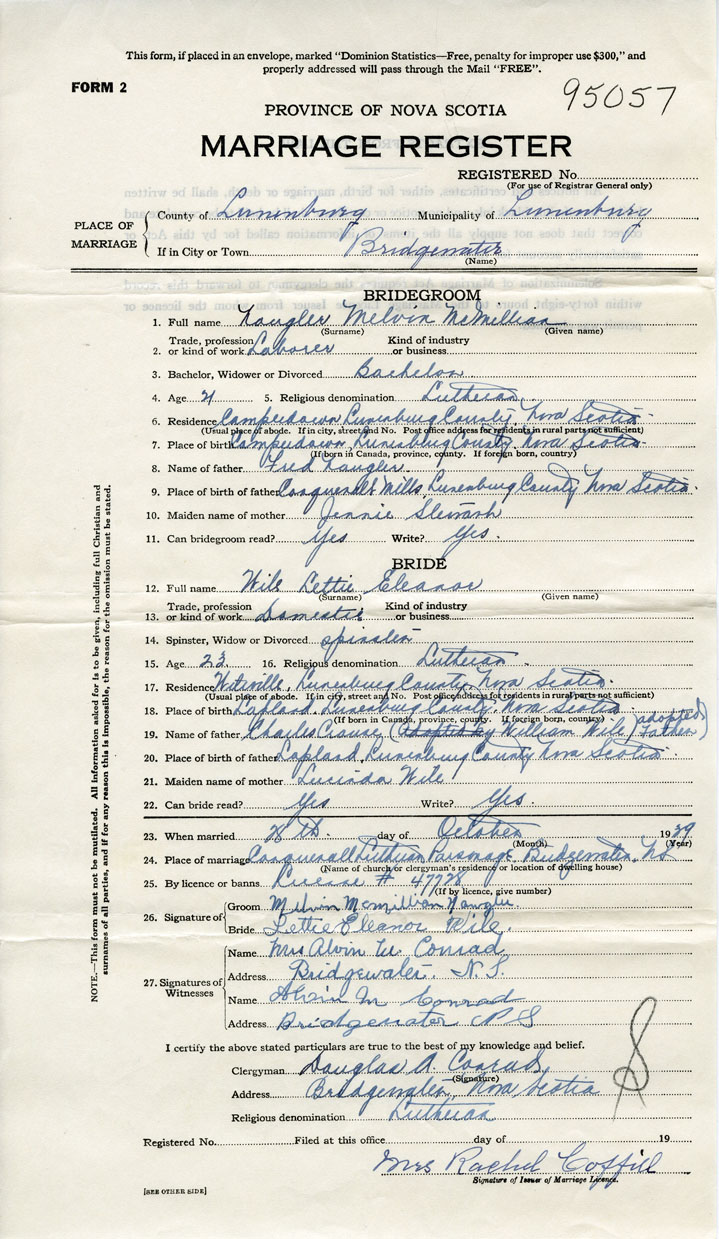 This form, if placed in an envelope, marked "Dominion Statistics—Free, penalty for improper use $300," and
properly addressed will pass through the Mail "FREE".
FORM 2
95057
PROVINCE OF NOVA SCOTIA
MARRIAGE REGISTER
REGISTERED No.
(For use of Registrar General only)
PLACE OF MARRIAGE
County of Lunenburg Municipality of Lunenburg
If in City or Town Bridgewater
(Name)
BRIDEGROOM
1. Full name Naugler Melvin McMillian
(Surname) (Given name)
Trade, profession Kind of industry
2. or kind of work Laborer or business
3. Bachelor, Widower or Divorced Bachelor
4. Age 21 5. Religious denomination Lutheran
6. Residence Camperdown Lunenburg County, Nova Scotia
(Usual place of abode. If in city, street and No. Post office address for residents in rural parts not sufficient)
7. Place of birth Camperdown, Lunenburg County, Nova Scotia
(If born in Canada, province, county. If foreign born, country)
8. Name of father Fred Naugler
9. Place of birth of father Conquerall Mills, Lunenburg County Nova Scotia.
10. Maiden name of mother Jennie
11. Can bridegroom read? Yes Write? Yes.
BRIDE
12. Full name Wile Lettie Eleanor
(Surname) (Given name)
Trade, profession Kind of industry
13. or kind of work Domestic or business
14. Spinster, Widow or Divorced spinster
15. Age 23. 16. Religious denomination Lutheran
17. Residence Lunenburg County, Nova Scotia.
(Usual place of abode. If in city, street and No. Post office address for residents in rural parts not sufficient)
18. Place of birth Lapland, Lunenburg County, Nova Scotia
(If born in Canada, province, county. If foreign born, country)
19. Name of father Charles Crouse (adopted by William Wile) (adopted Father)
20. Place of birth of father Lapland, Lunenburg County Nova Scotia.
21. Maiden name of mother Lucinda Wile
22. Can bride read? Yes Write? Yes.
23. When married 28th. day of October 1939
(Month) (Year)
24. Place of marriage Conquerall Lutheran Parsonage Bridgewater, N.S.
(Name of church or clergyman's residence or location of dwelling house)
25. By licence or banns License # 47728
(If by licence, give number)
26. Signature of
Groom Melvin Mcmillian Naugler.
Bride Lettie Eleanor Wile.
27. Signatures of Witnesses
Name Mrs Alvin M. Conrad
Address Bridgewater. N.S.
Name Alvin M Conrad
Address Bridgewater N S
I certify the above stated particulars are true to the best of my knowledge and belief.
Clergyman Douglas A. Conrad,
(Signature)
Address Bridgewater, Nova Scotia
Religious denomination Lutheran
Registered No. Filed at this office day of 19
Mrs Rachel Coffill
Signature of Issuer of Marriage Licence.
[SEE OTHER SIDE]
NOTE.—This form must not be mutilated. All information asked for is to be given, including full Christian and
surnames of all parties, and if for any reason this is impossible, the reason for the omission must be stated.